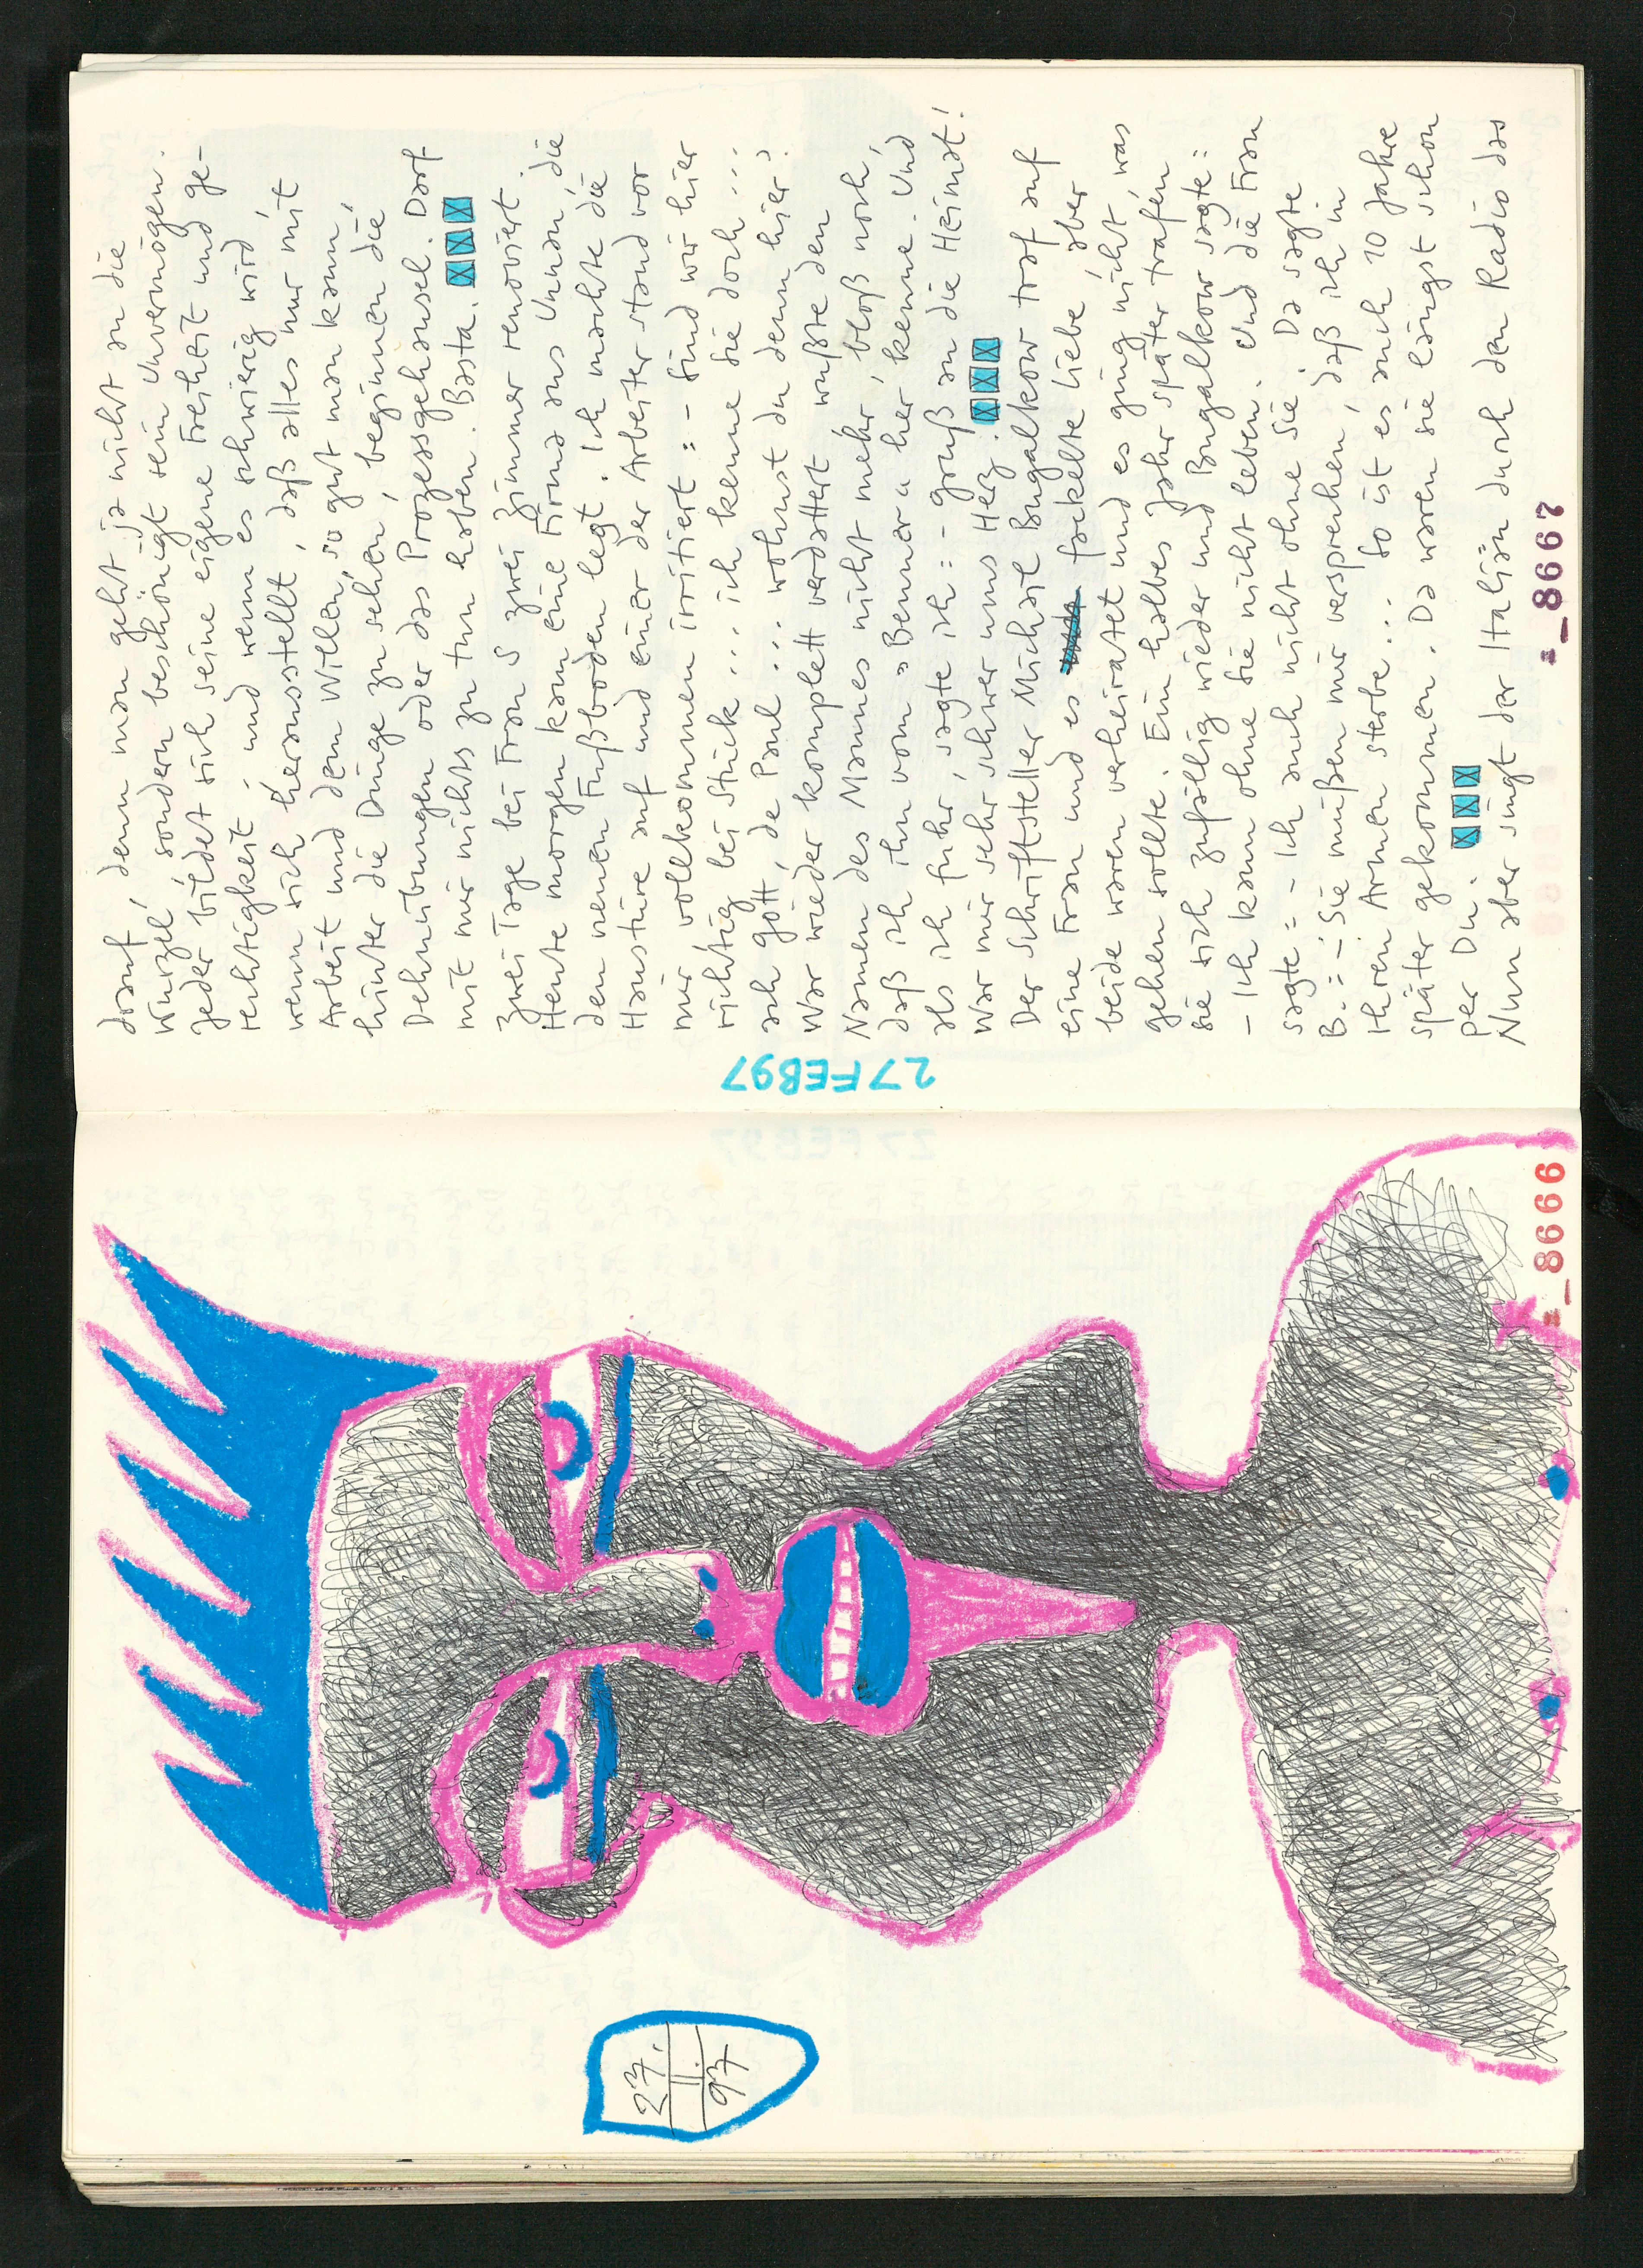 27.
II.
97
=_8666
27FEB97
drauf, denn man geht ja nicht an die
Wurzel, sondern beschönigt sein Unvermögen.
Jeder bildet sich seine eigene Freiheit und Ge-
rechtigkeit - und wenn es schwierig wird,
wenn sich herausstellt, daß alles nur mit
Arbeit und dem Willen, so gut man kann,
hinter die Dinge zu sehen, beginnen die
Dehnübungen oder das Prozessgehansel. Darf
mit mir nichts zu tun haben. Basta.
Zwei Tage bei Frau S zwei Zimmer renoviert.
Heute morgen kam eine Firma aus Unna, die
den neuen Fußboden legt. Ich machte die
Haustüre auf und einer der Arbeiter stand vor
mir, vollkommen irritiert: - Sind wir hier
richtig bei Stück... ich kenne Sie doch...
ach Gott, de Paul... wohnst du denn hier?
War wieder komplett verdattert wußte den
Namen des Mannes nicht mehr, bloß noch,
daß ich ihn vom Benner a her kenne. Und
als ich fuhr, sagte ich: - Gruß an die Heimat!
War mir sehr schwer ums Herz.
Der Schriftsteller Michail Bugalkow traf auf
eine Frau und es fackelte Liebe, aber
beide waren verheiratet und es ging nicht, was
gehen sollte. Ein halbes Jahr später trafen
sie sich zufällig wieder und Bugalkow sagte:
- Ich kann ohne Sie nicht leben. Und die Frau
sagte: - Ich auch nicht ohne Sie. Da sagte
B.: - Sie müßen mir versprechen, daß ich in
Ihren Armen sterbe... So ist es auch 10 Jahre
später gekommen. Da waren sie längst schon
per Du.
Nun aber singt der Italiän durch den Radio das
=_8667